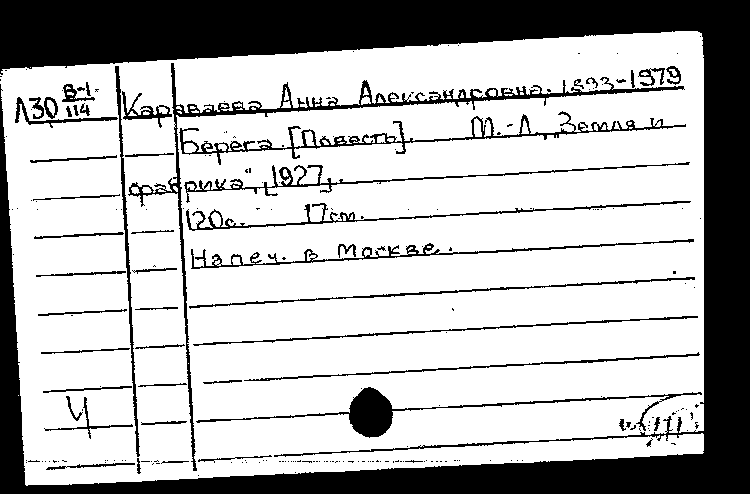 Л30 В-1/114 Караваева, Анна Александровна, 1893-1979
Берега [Повесть]. М.-Л., „Земля и
фабрика", [1927].
120с. 17см.
Напеч. в Москве.
Ч